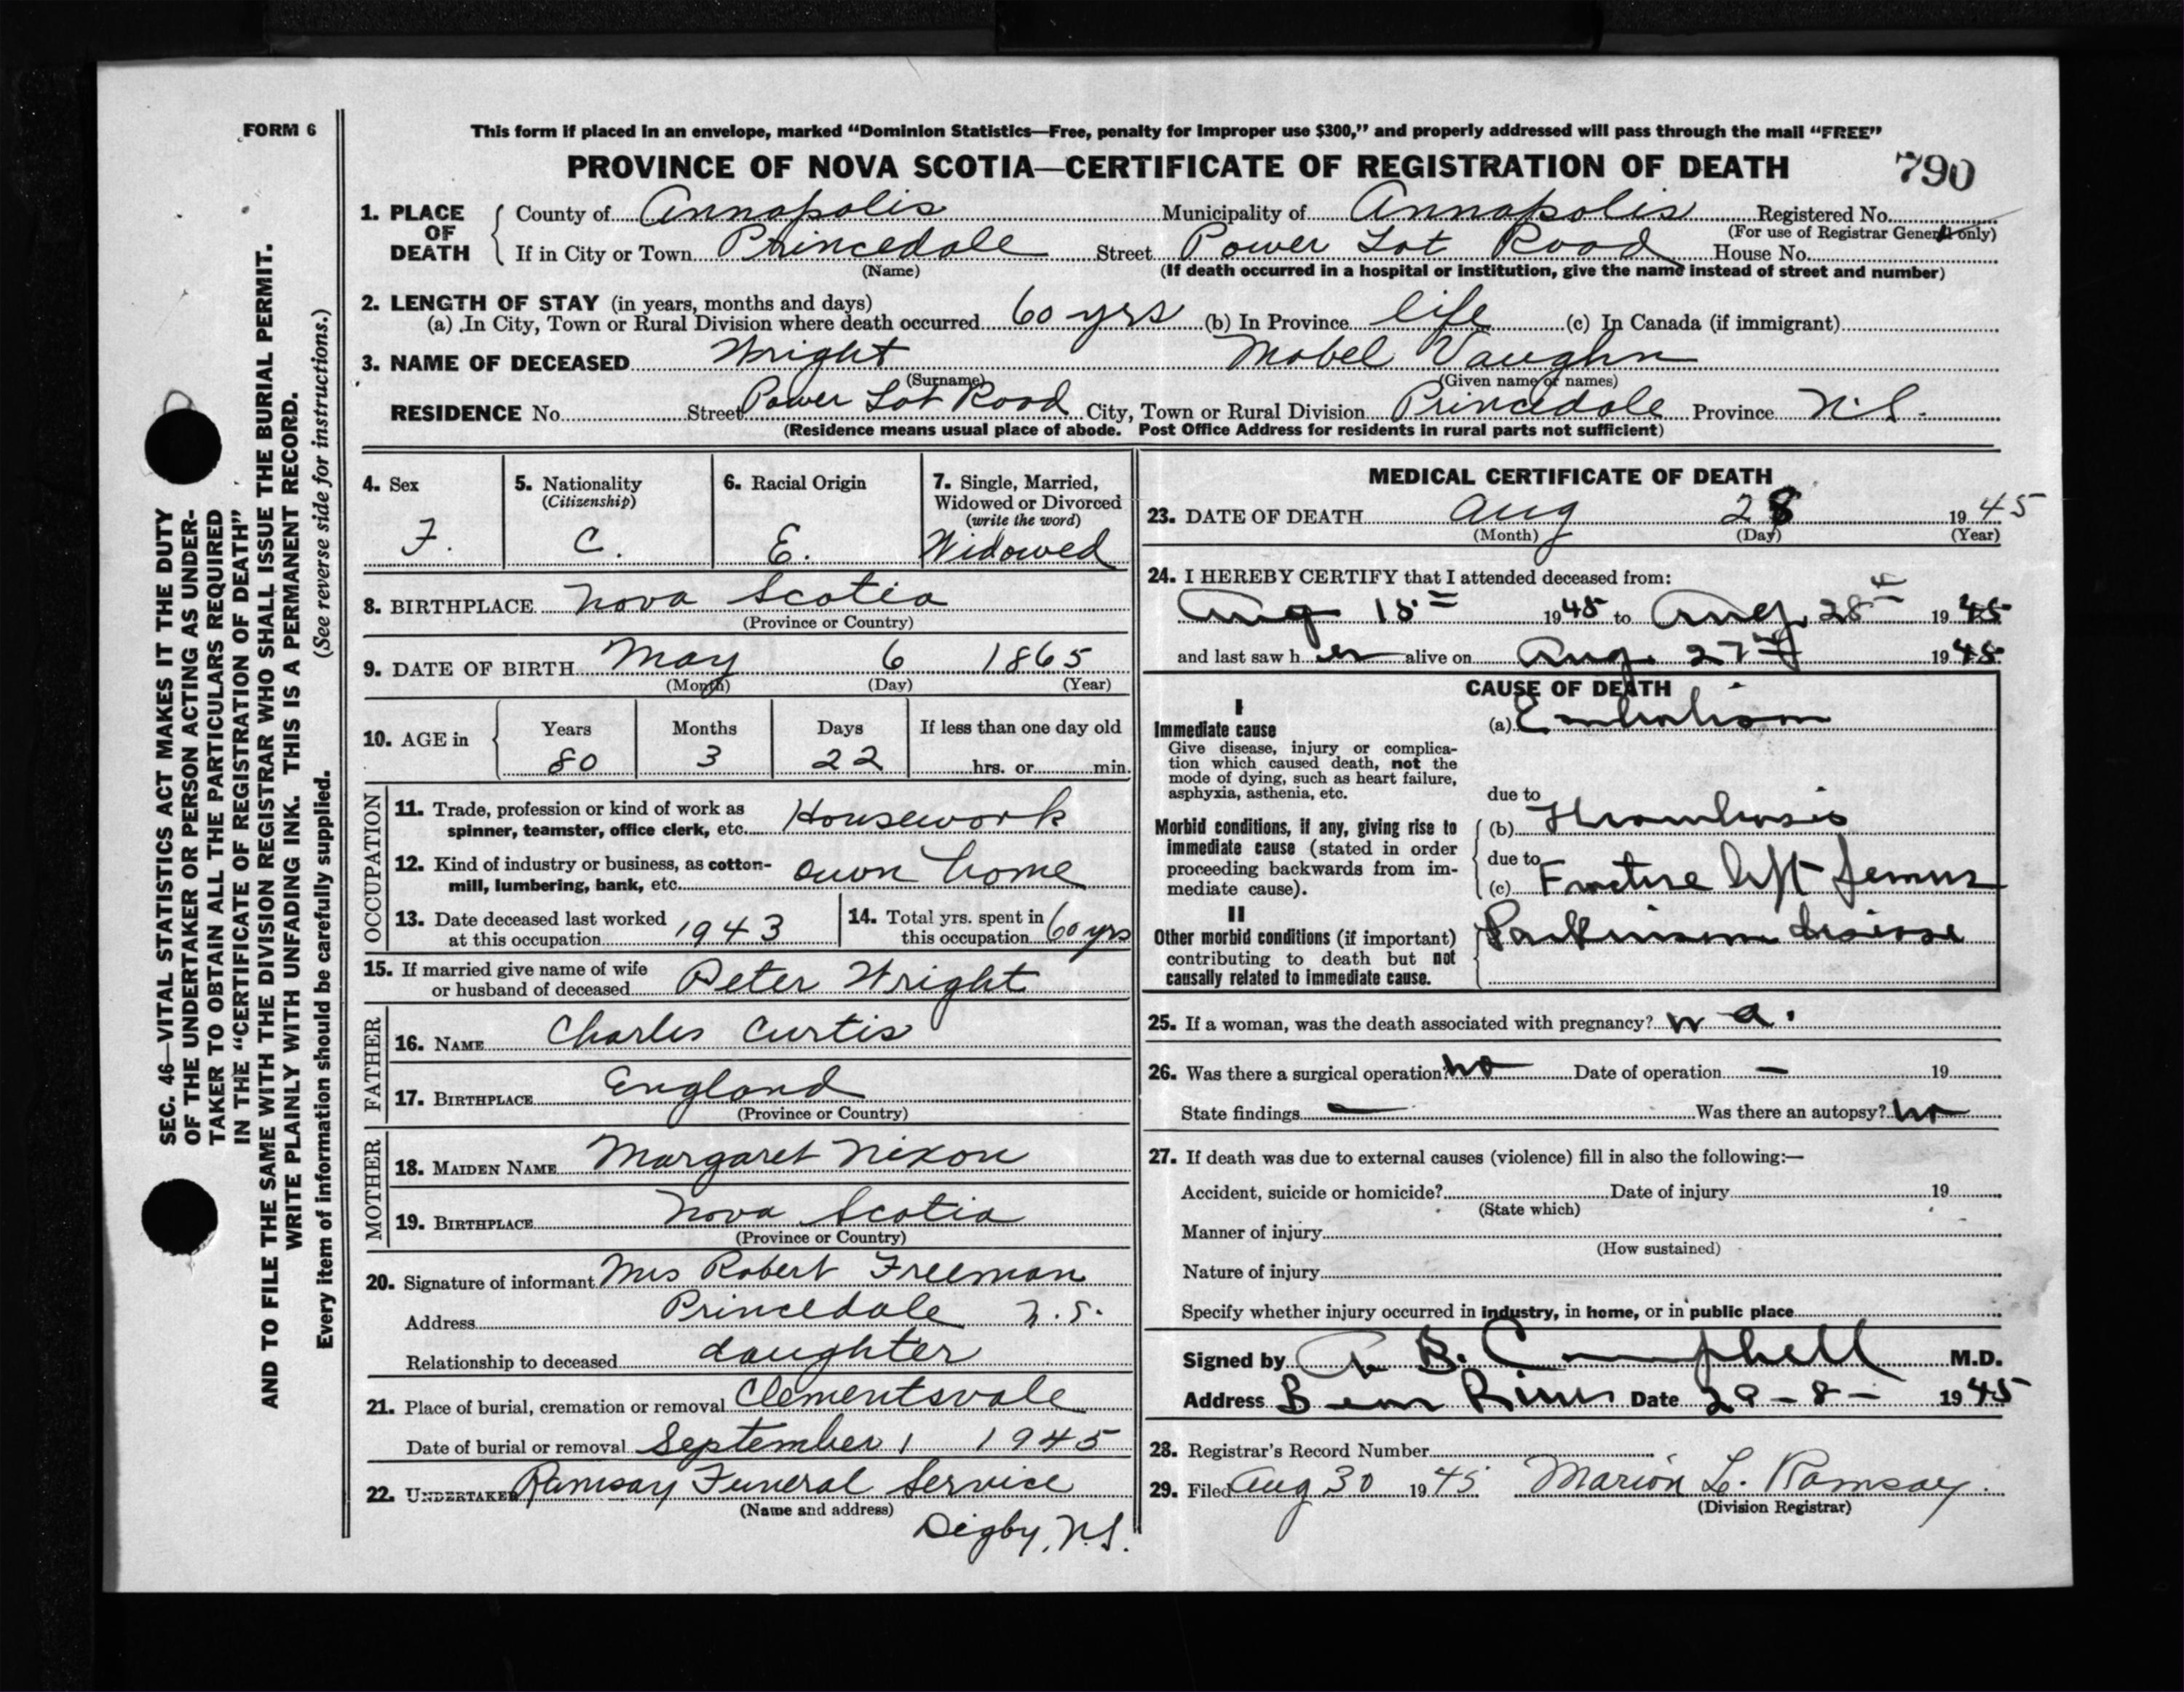 FORM 6
This form if placed in an envelope, marked "Dominion Statistics—Free, penalty for improper use $300," and properly addressed will pass through the mail "FREE"
PROVINCE OF NOVA SCOTIA—CERTIFICATE OF REGISTRATION OF DEATH 790
SEC. 46—VITAL STATISTICS ACT MAKES IT THE DUTY
OF THE UNDERTAKER OR PERSON ACTING AS UNDER-
TAKER TO OBTAIN ALL THE PARTICULARS REQUIRED
IN THE "CERTIFICATE OF REGISTRATION OF DEATH"
AND TO FILE THE SAME WITH THE DIVISION REGISTRAR WHO SHALL ISSUE THE BURIAL PERMIT.
WRITE PLAINLY WITH UNFADING INK. THIS IS A PERMANENT RECORD.
Every item of information should be carefully supplied. (See reverse side for instructions.)
1. PLACE OF DEATH County of Annapolis Municipality of Annapolis Registered No.
(For use of Registrar General only)
If in City or Town Princedale Street Power Lot Road House No.
(Name) (If death occurred in a hospital or institution, give the name instead of street and number)
2. LENGTH OF STAY (in years, months and days)
(a) In City, Town or Rural Division where death occurred 60 yrs (b) In Province life (c) In Canada (if immigrant)
3. NAME OF DECEASED Wright Mabel Vaughn
(Surname) (Given name or names)
RESIDENCE No. Street Power Lot Road City, Town or Rural Division Princedale Province N.S.
(Residence means usual place of abode. Post Office Address for residents in rural parts not sufficient)
4. Sex
F.
5. Nationality
(Citizenship)
C.
6. Racial Origin
E.
7. Single, Married,
Widowed or Divorced
(write the word)
Widowed
8. BIRTHPLACE Nova Scotia
(Province or Country)
9. DATE OF BIRTH May 6 1865
(Month) (Day) (Year)
10. AGE in Years Months Days If less than one day old
80 3 22 hrs. or min.
OCCUPATION
11. Trade, profession or kind of work as
spinner, teamster, office clerk, etc. Housework
12. Kind of industry or business, as cotton-
mill, lumbering, bank, etc. own home
13. Date deceased last worked
at this occupation 1943
14. Total yrs. spent in
this occupation 60 yrs
15. If married give name of wife
or husband of deceased Peter Wright
FATHER
16. NAME Charles Curtis
17. BIRTHPLACE England
(Province or Country)
MOTHER
18. MAIDEN NAME Margaret Nixon
19. BIRTHPLACE Nova Scotia
(Province or Country)
20. Signature of informant Mrs Robert Freeman
Address Princedale N.S.
Relationship to deceased daughter
21. Place of burial, cremation or removal Clementsvale
Date of burial or removal September 1 1945
22. UNDERTAKER Ramsay Funeral Service
(Name and address)
Digby, N.S.
MEDICAL CERTIFICATE OF DEATH
23. DATE OF DEATH Aug 28 1945
(Month) (Day) (Year)
24. I HEREBY CERTIFY that I attended deceased from:
Aug 15th 1945 to Aug. 28th 1945
and last saw her alive on Aug. 27th 1945
CAUSE OF DEATH
I
Immediate cause
Give disease, injury or complica-
tion which caused death, not the
mode of dying, such as heart failure,
asphyxia, asthenia, etc.
(a) Embolism
due to
Morbid conditions, if any, giving rise to
immediate cause (stated in order
proceeding backwards from im-
mediate cause).
(b) Thrombosis
due to
(c) Fracture left femur
II
Other morbid conditions (if important)
contributing to death but not
causally related to immediate cause.
Parkinson disease
25. If a woman, was the death associated with pregnancy? n a.
26. Was there a surgical operation? no Date of operation — 19
State findings — Was there an autopsy? no
27. If death was due to external causes (violence) fill in also the following:—
Accident, suicide or homicide? Date of injury 19
(State which)
Manner of injury
(How sustained)
Nature of injury
Specify whether injury occurred in industry, in home, or in public place
Signed by A B. Campbell M.D.
Address Bear River Date 29-8- 1945
28. Registrar's Record Number
29. Filed Aug 30 1945 Marion L. Ramsay.
(Division Registrar)